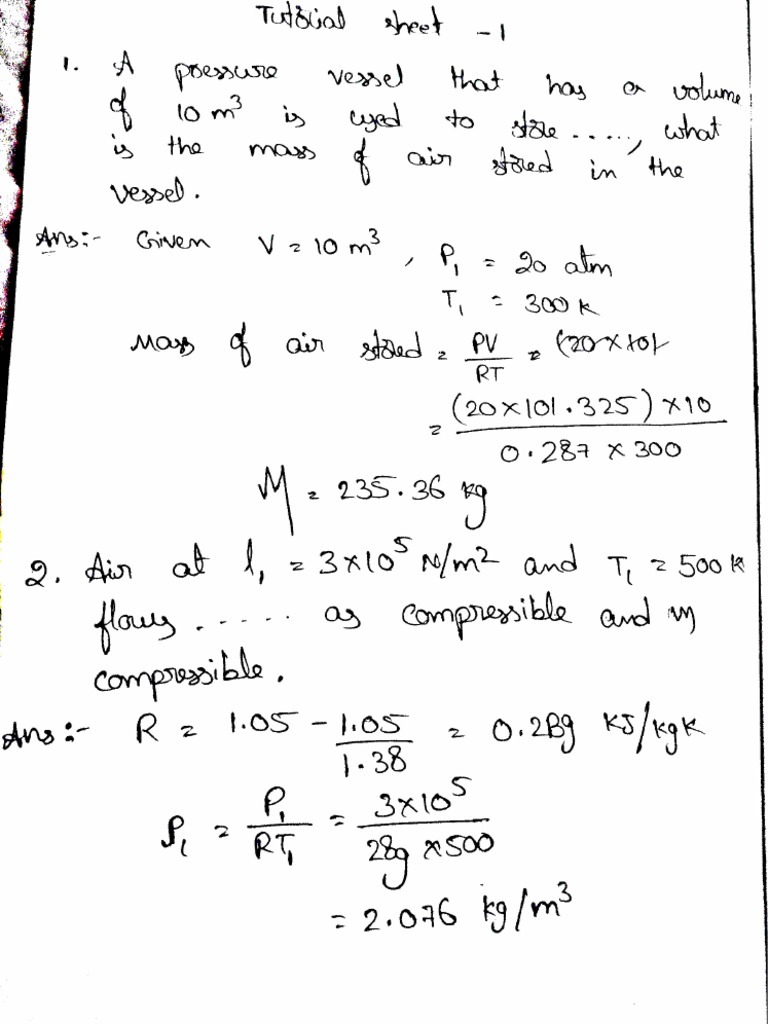 Tutorial sheet -1
1. A pressure vessel that has a volume
of 10 m³ is used to store ....., what
is the mass of air stored in the
vessel.
Ans:- Given V = 10 m³, P₁ = 20 atm
T₁ = 300 K
Mass of air stored = PV/RT = (20×10)
= (20×101.325)×10 / 0.287 × 300
M = 235.36 kg
2. Air at P₁ = 3×10⁵ N/m² and T₁ = 500 K
flows ...... as compressible and in
compressible.
Ans:- R = 1.05 - 1.05/1.38 = 0.289 KJ/kgK
ρ₁ = P₁/RT₁ = 3×10⁵/289×500
= 2.076 kg/m³